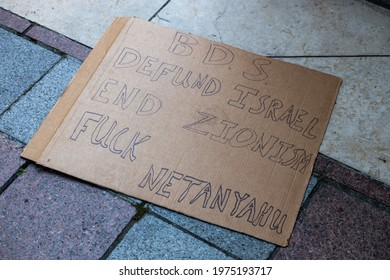 BDS
DEFUND ISRAEL
END ZIONISM
FUCK
NETANYAHU
shutterstock.com · 1975193717